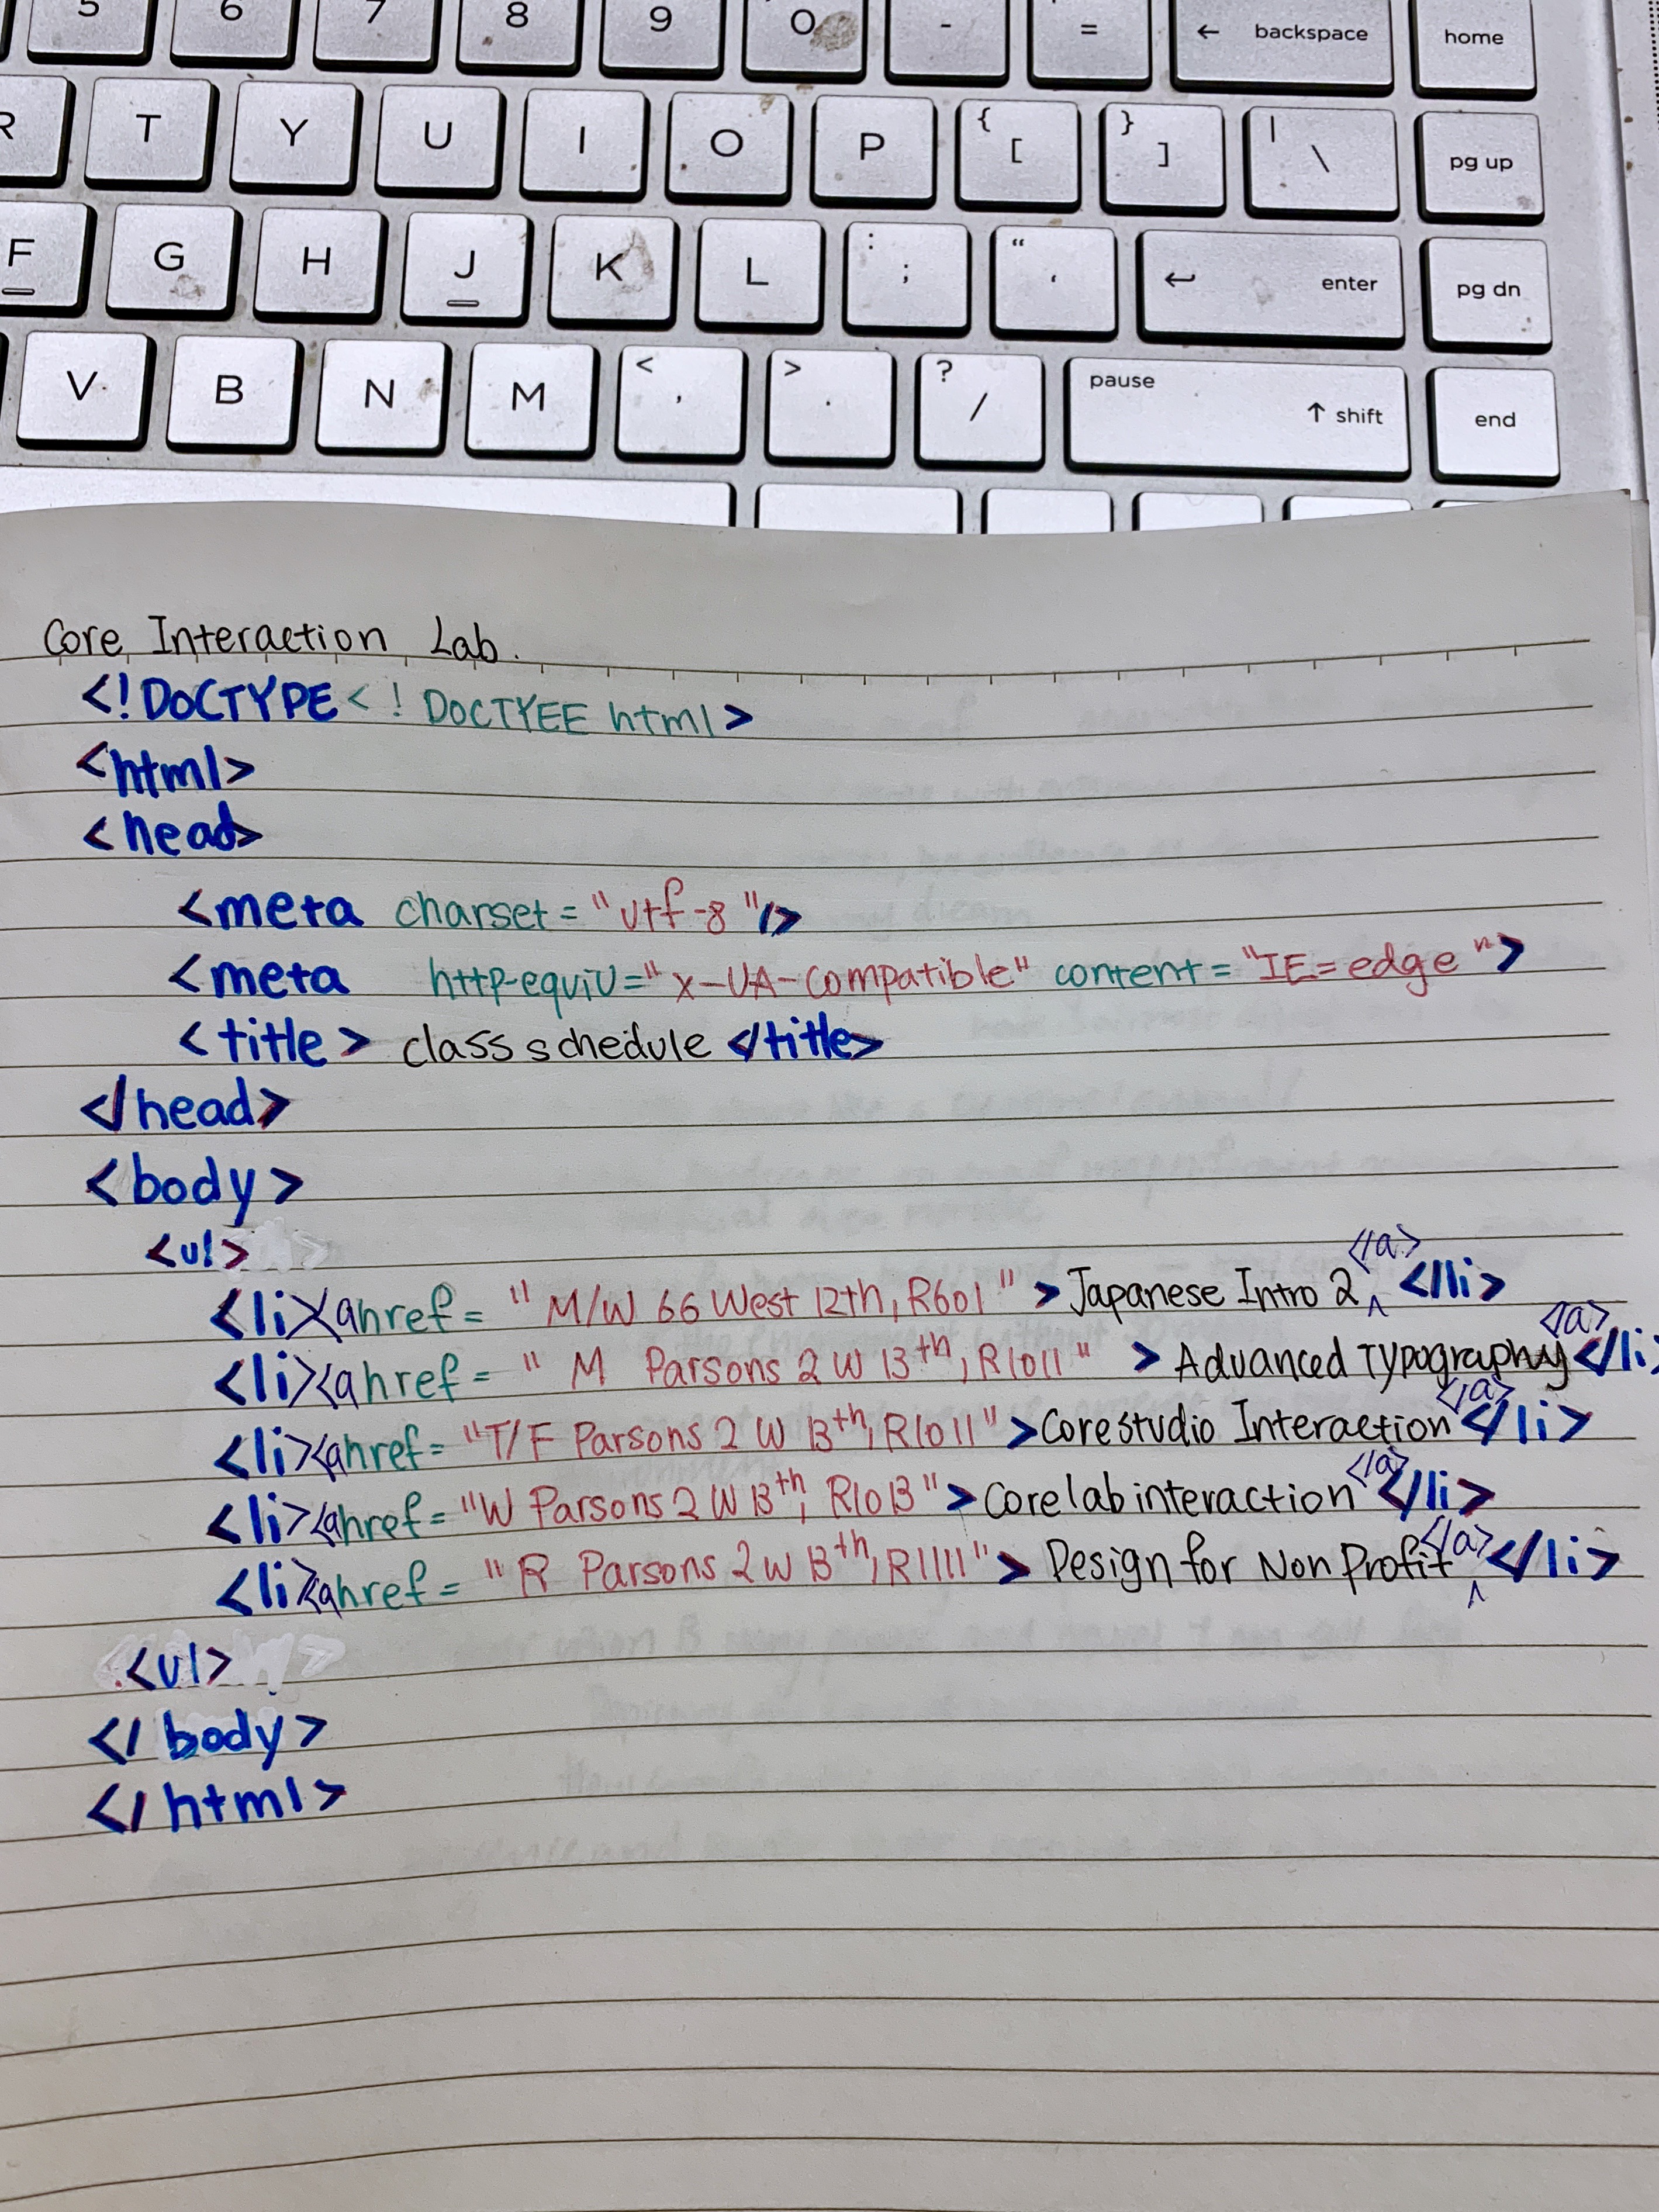 5 6 7 8 9 0 - = ← backspace home
R T Y U I O P { [ } ] | \ pg up
F G H J K L : ; “ ‘ ↵ enter pg dn
V B N M < , > . ? / pause ↑ shift end
Core Interaction Lab.
<!DOCTYPE < ! DOCTYEE html>
<html>
<head>
<meta charset = "utf-8"/>
<meta http-equiv="x-UA-Compatible" content="IE=edge">
<title> class schedule </title>
</head>
<body>
<ul>
<li><ahref= "M/W 66 West 12th, R601" > Japanese Intro 2 </a> </li>
<li><ahref= "M Parsons 2 W 13th, R1011" > Advanced Typography </a> </li>
<li><ahref= "T/F Parsons 2 W 13th, R1011" > Core studio Interaction </a> </li>
<li><ahref= "W Parsons 2 W 13th, R1013" > Core lab interaction </a> </li>
<li><ahref= "R Parsons 2 W 13th, R1111" > Design for Non Profit </a> </li>
<ul>
</body>
</html>